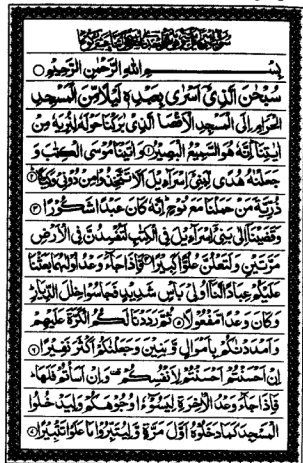 بِسْمِ اللّٰهِ الرَّحْمٰنِ الرَّحِيْمِ
سُبْحٰنَ الَّذِيْۤ اَسْرٰى بِعَبْدِهٖ لَيْلًا مِّنَ الْمَسْجِدِ
الْحَرَامِ اِلَى الْمَسْجِدِ الْاَقْصَا الَّذِيْ بٰرَكْنَا حَوْلَهٗ لِنُرِيَهٗ مِنْ
اٰيٰتِنَا اِنَّهٗ هُوَ السَّمِيْعُ الْبَصِيْرُ ۱ وَ اٰتَيْنَا مُوْسَى الْكِتٰبَ وَ
جَعَلْنٰهُ هُدًى لِّبَنِيْۤ اِسْرَآءِيْلَ اَلَّا تَتَّخِذُوْا مِنْ دُوْنِيْ وَكِيْلًا ۲
ذُرِّيَّةَ مَنْ حَمَلْنَا مَعَ نُوْحٍ اِنَّهٗ كَانَ عَبْدًا شَكُوْرًا ۳
وَ قَضَيْنَاۤ اِلٰى بَنِيْۤ اِسْرَآءِيْلَ فِي الْكِتٰبِ لَتُفْسِدُنَّ فِي الْاَرْضِ
مَرَّتَيْنِ وَ لَتَعْلُنَّ عُلُوًّا كَبِيْرًا ۴ فَاِذَا جَآءَ وَعْدُ اُوْلٰىهُمَا بَعَثْنَا
عَلَيْكُمْ عِبَادًا لَّنَاۤ اُولِيْ بَاْسٍ شَدِيْدٍ فَجَاسُوْا خِلٰلَ الدِّيَارِ
وَ كَانَ وَعْدًا مَّفْعُوْلًا ۵ ثُمَّ رَدَدْنَا لَكُمُ الْكَرَّةَ عَلَيْهِمْ
وَ اَمْدَدْنٰكُمْ بِاَمْوَالٍ وَّ بَنِيْنَ وَ جَعَلْنٰكُمْ اَكْثَرَ نَفِيْرًا ۶
اِنْ اَحْسَنْتُمْ اَحْسَنْتُمْ لِاَنْفُسِكُمْ وَ اِنْ اَسَاْتُمْ فَلَهَا
فَاِذَا جَآءَ وَعْدُ الْاٰخِرَةِ لِيَسُوْٓءٗا وُجُوْهَكُمْ وَ لِيَدْخُلُوا
الْمَسْجِدَ كَمَا دَخَلُوْهُ اَوَّلَ مَرَّةٍ وَّ لِيُتَبِّرُوْا مَا عَلَوْا تَتْبِيْرًا ۷